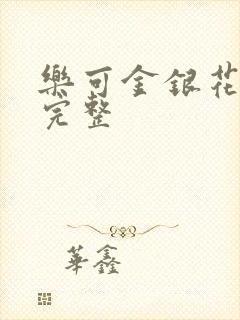 樂可金銀花
完整
華鑫